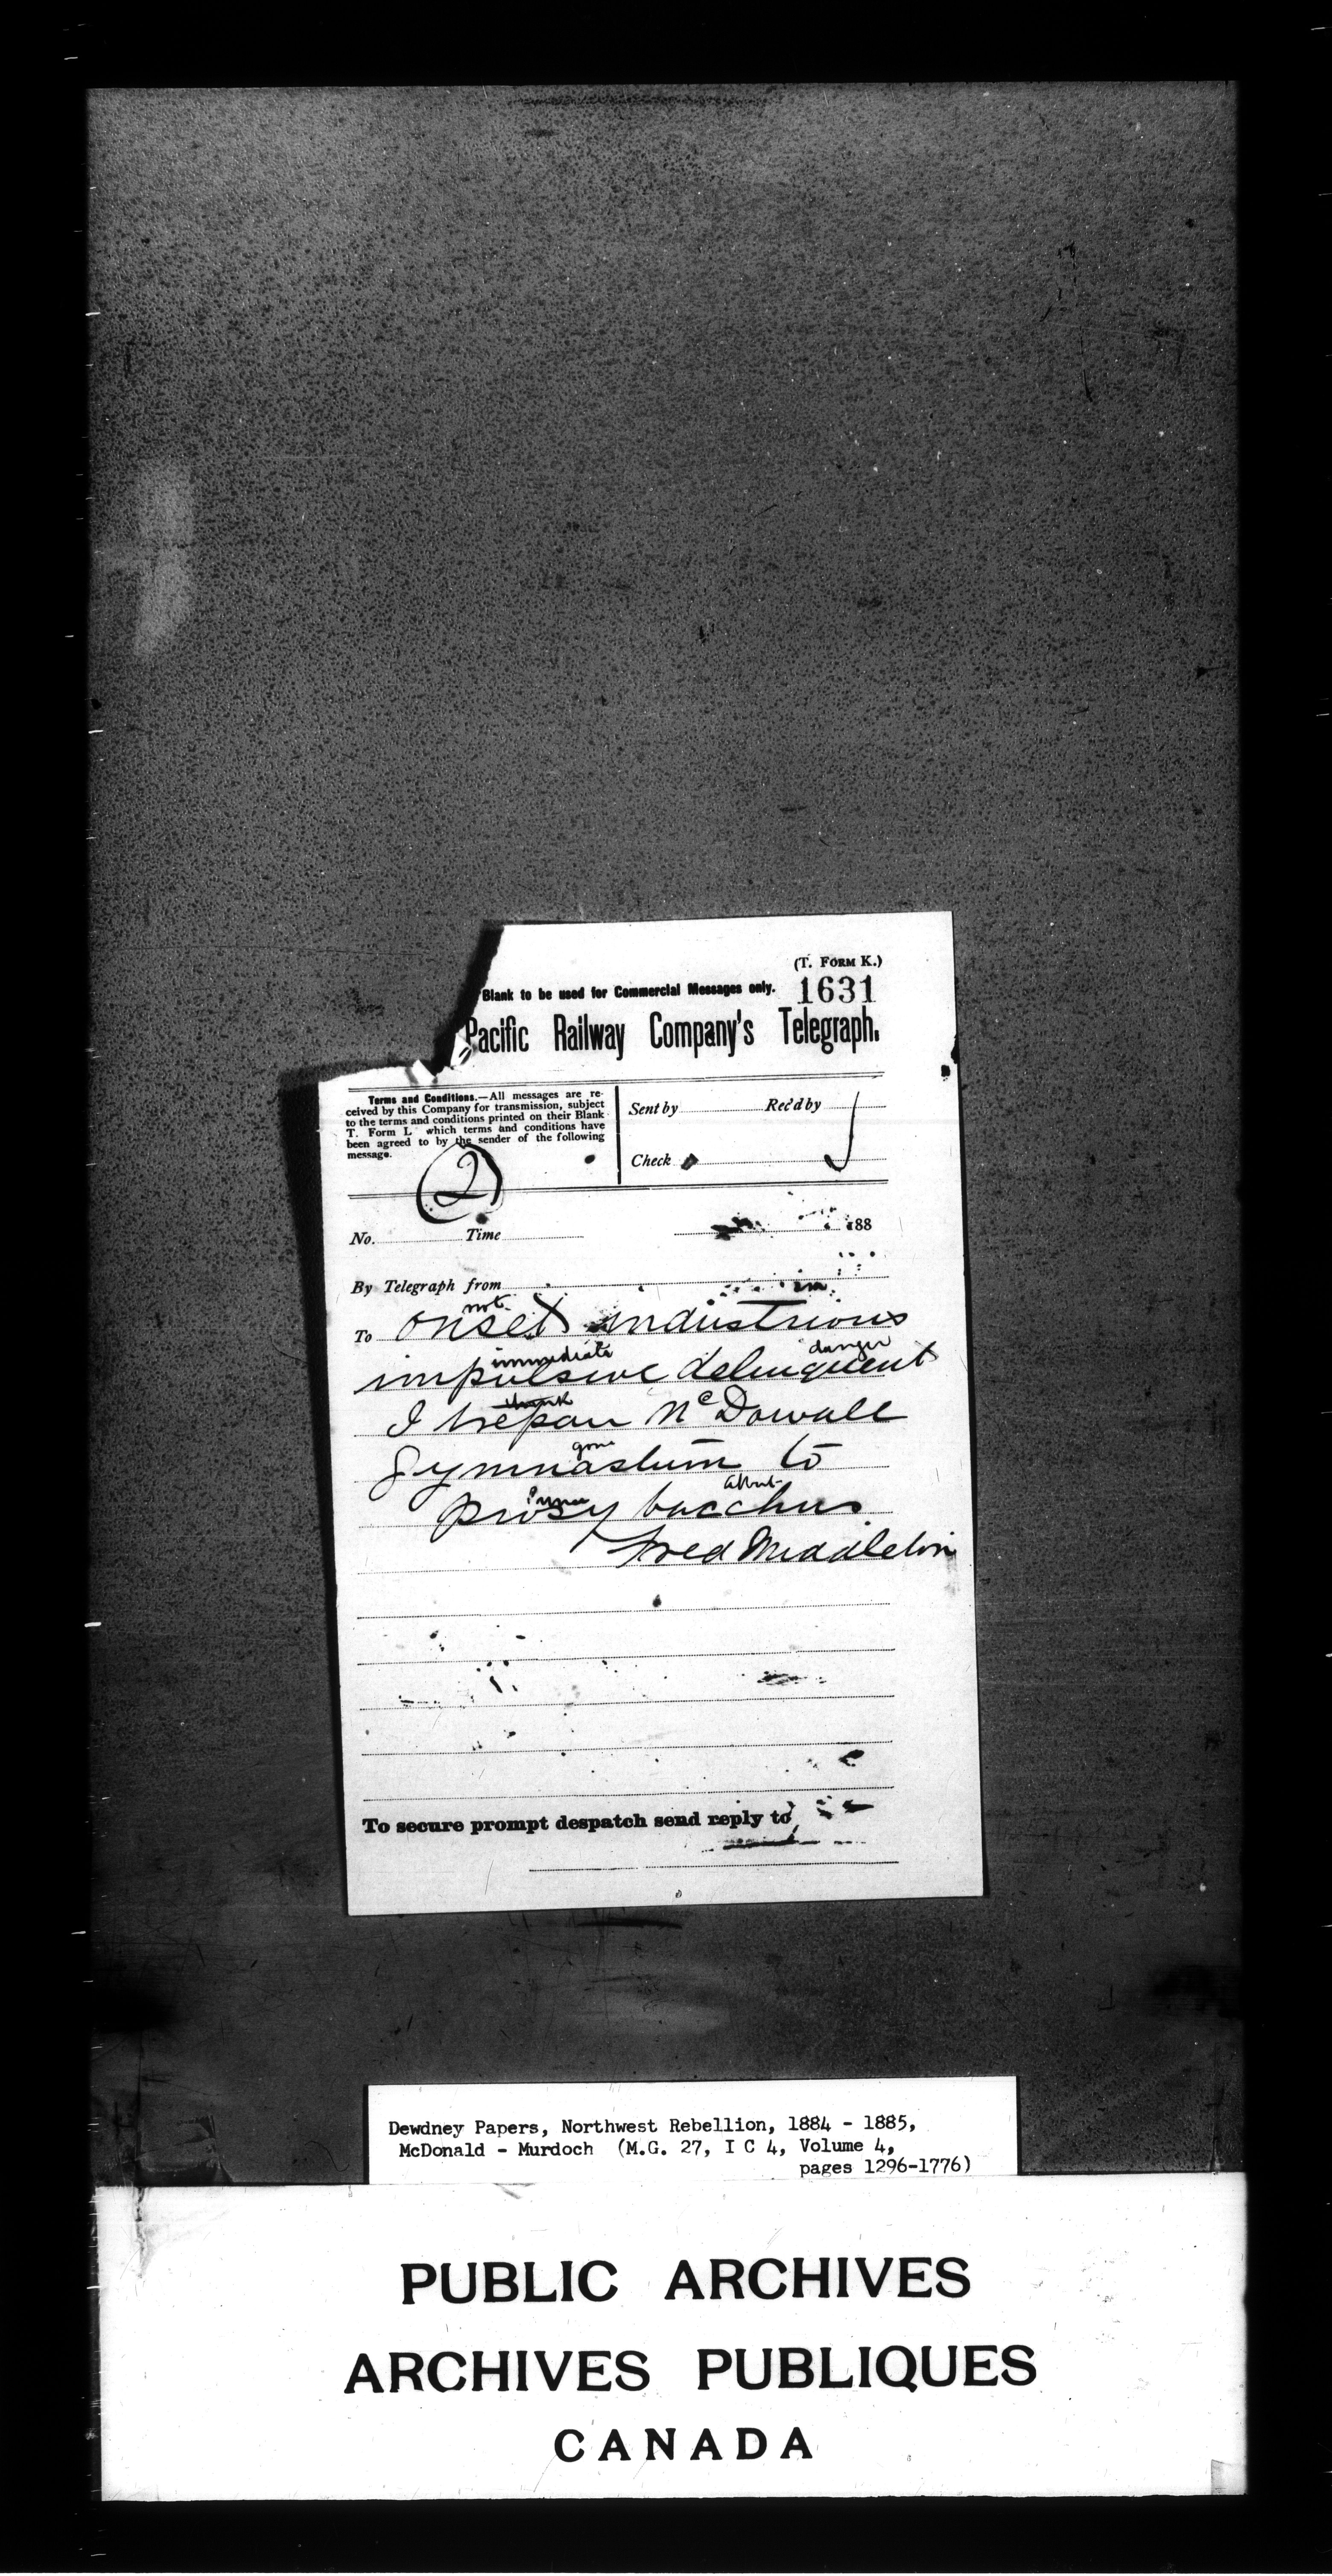 (T. FORM K.)
Blank to be used for Commercial Messages only.
1631
Pacific Railway Company's Telegraph.
Terms and Conditions.—All messages are re-
ceived by this Company for transmission, subject
to the terms and conditions printed on their Blank
T. Form L which terms and conditions have
been agreed to by the sender of the following
message.
Sent by Rec'd by
Check
2
No. Time 188
By Telegraph from
not
To onset industrious
immediate danger
impulsive delinquent
think
I trepan McDowall
gone
Gymnasium to
prince about
prosy bacchus
Fred Middleton
To secure prompt despatch send reply to
Dewdney Papers, Northwest Rebellion, 1884 - 1885,
McDonald - Murdoch (M.G. 27, I C 4, Volume 4,
pages 1296-1776)
PUBLIC ARCHIVES
ARCHIVES PUBLIQUES
CANADA